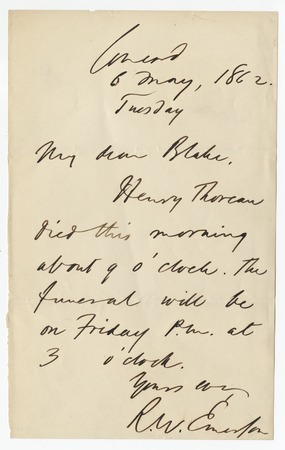 Concord
6 May, 1862.
Tuesday
My dear Blake,
Henry Thoreau
died this morning
about 9 o'clock. The
funeral will be
on Friday P.M. at
3 o'clock.
Yours ever,
R. W. Emerson